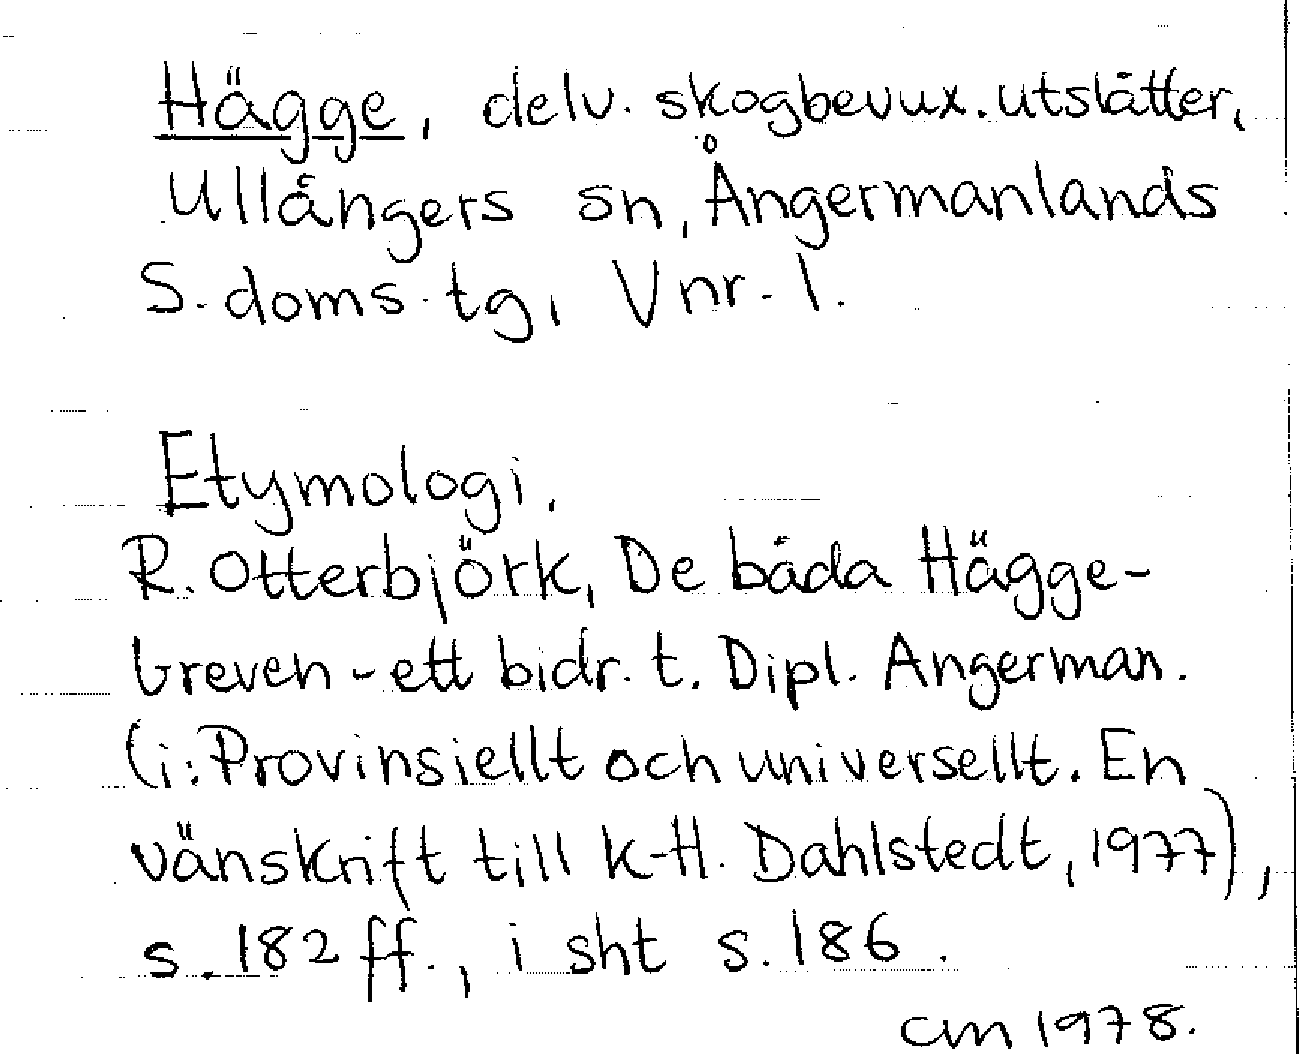 Hägge, delv. skogbevux. utslåtter,
Ullångers sn, Ångermanlands
S. doms. tg, V nr. 1.
Etymologi.
R. Otterbjörk, De båda Hägge-
breven - ett bidr. t. Dipl. Angerman.
(i: Provinsiellt och universellt. En
vänskrift till K-H. Dahlstedt, 1977),
s. 182 ff., i sht s. 186.
cm 1978.